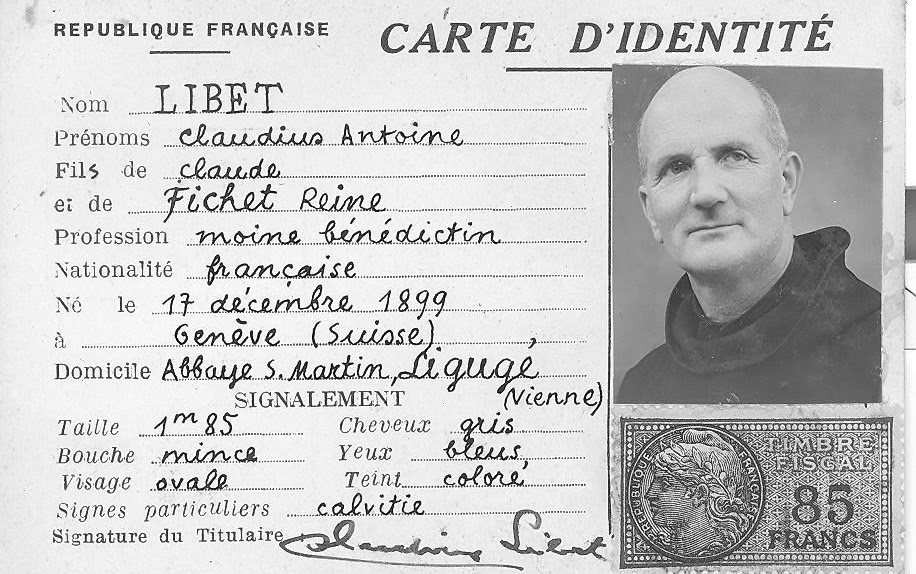 REPUBLIQUE FRANÇAISE
CARTE D'IDENTITÉ
Nom LIBET
Prénoms Claudius Antoine
Fils de claude
et de Fichet Reine
Profession moine bénédictin
Nationalité française
Né le 17 décembre 1899
à Genève (Suisse)
Domicile Abbaye S. Martin, Ligugé
(Vienne)
SIGNALEMENT
Taille 1m 85 Cheveux gris
Bouche mince Yeux bleus
Visage ovale Teint coloré
Signes particuliers calvitie
Signature du Titulaire Claudius Libet
TIMBRE
FISCAL
85
FRANCS
REPUBLIQUE FRANÇAISE